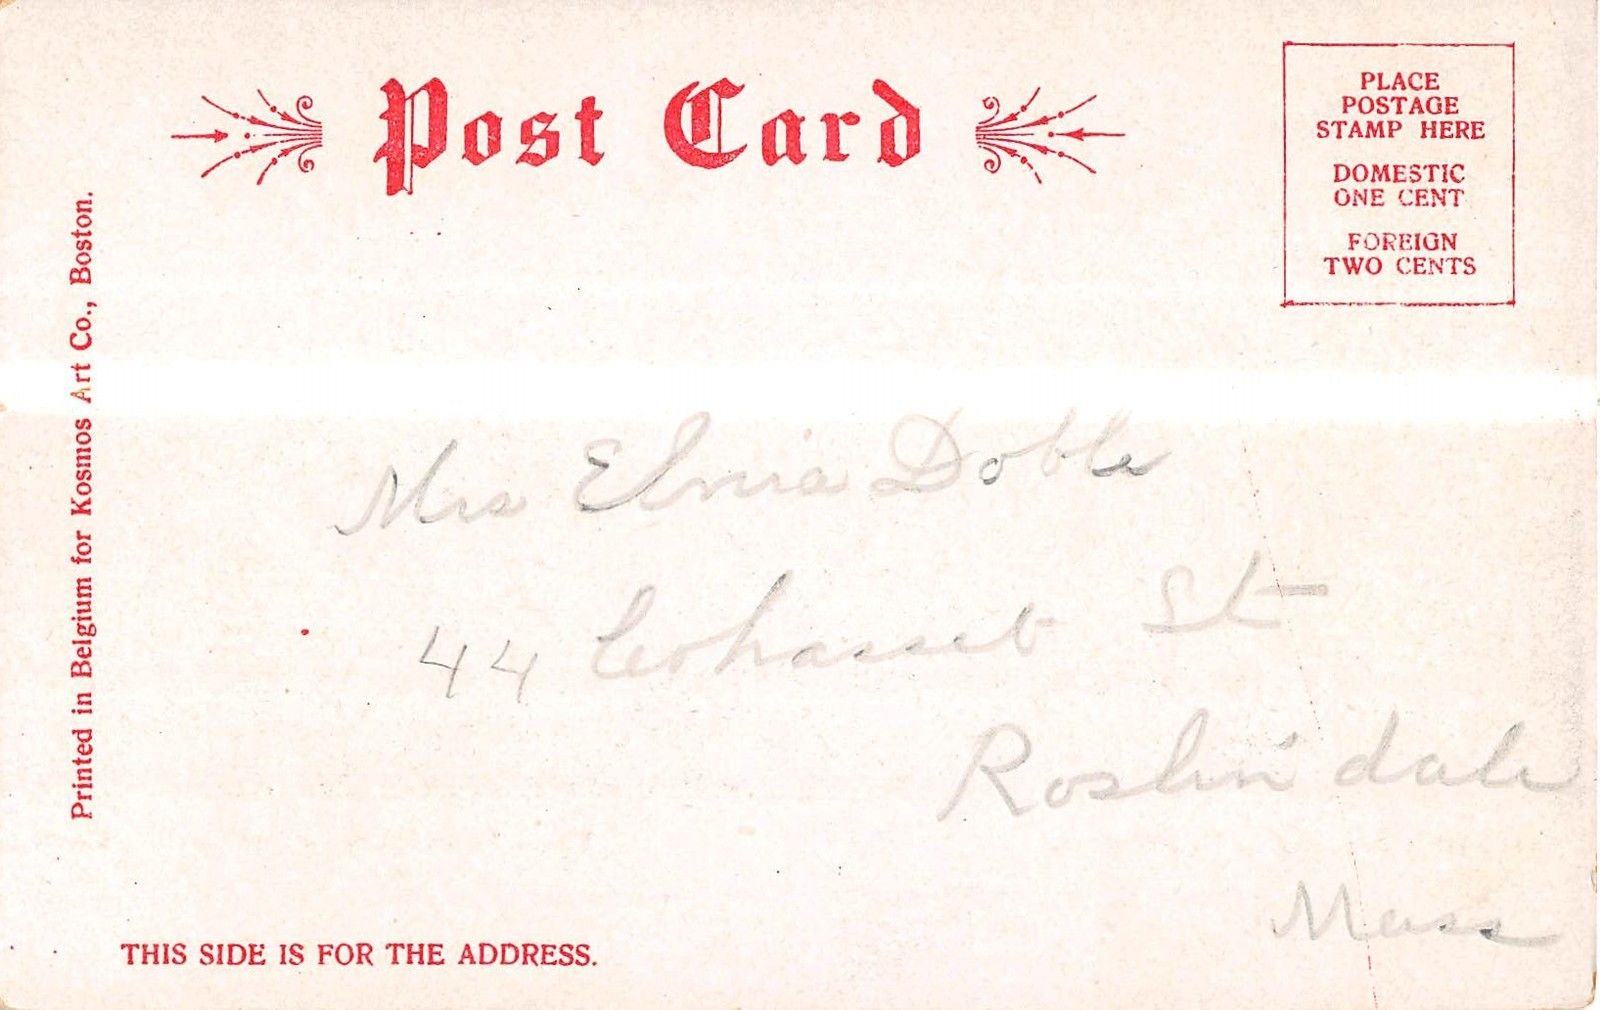 Post Card
PLACE
POSTAGE
STAMP HERE
DOMESTIC
ONE CENT
FOREIGN
TWO CENTS
Printed in Belgium for Kosmos Art Co., Boston.
Mrs Doble
44 Cohasset St
Roslindale
Mass
THIS SIDE IS FOR THE ADDRESS.